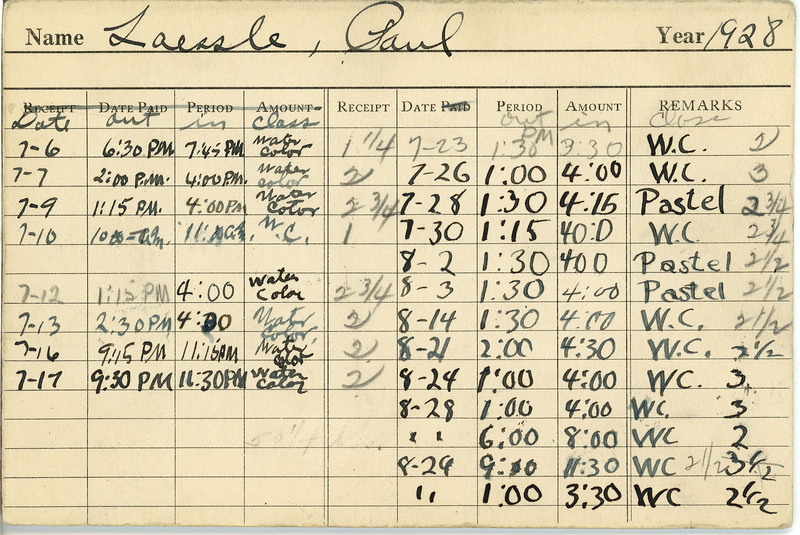 Name Laessle, Paul Year 1928
RECEIPT DATE PAID PERIOD AMOUNT RECEIPT DATE PAID PERIOD AMOUNT REMARKS
Date out in class out in class
7-6 6:30 PM 7:45 PM Water Color 1 1/4 7-23 1:30 PM 3:30 W.C. 2
7-7 2:00 P.M. 4:00 P.M. Water color 2 7-26 1:00 4:00 W.C. 3
7-9 1:15 P.M. 4:00 PM Water Color 2 3/4 7-28 1:30 4:15 Pastel 2 3/4
7-10 W.C. 1 7-30 1:15 400 W.C. 2 3/4
8-2 1:30 400 Pastel 2 1/2
7-12 1:15 PM 4:00 Water Color 2 3/4 8-3 1:30 4:00 Pastel 2 1/2
7-13 2:30 PM 4:30 Water Color 2 8-14 1:30 4:00 W.C. 2 1/2
7-16 9:15 PM 11:15 AM Water Color 2 8-21 2:00 4:30 W.C. 2 1/2
7-17 9:30 PM 11:30 PM Water Color 2 8-24 1:00 4:00 WC. 3
8-28 1:00 4:00 WC. 3
" " 6:00 8:00 WC 2
8-29 9:00 11:30 WC 2 1/2 3 1/2
" 1:00 3:30 WC 2 1/2